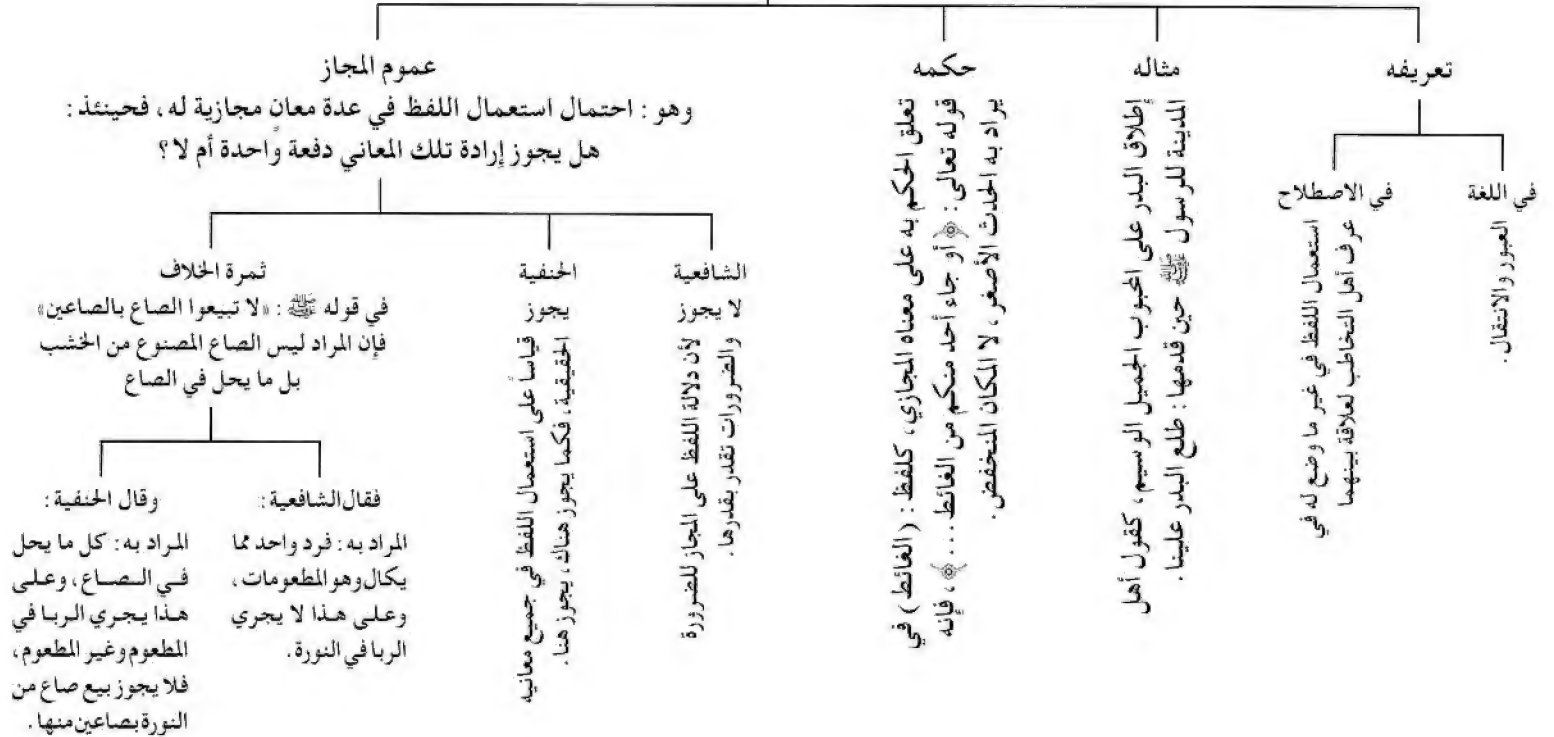 تعريفه
في اللغة
العبور والانتقال .
في الاصطلاح
استعمال اللفظ في غير ما وضع له في
عرف أهل التخاطب لعلاقة بينهما
مثاله
إطلاق البدر على المحبوب الجميل الوسيم ، كقول أهل
المدينة للرسول ﷺ حين قدمها : طلع البدر علينا .
حكمه
تعلق الحكم به على معناه المجازي ، كلفظ : ( الغائط ) في
قوله تعالى : ﴿ أو جاء أحد منكم من الغائط .... ﴾ ، فإنه
يراد به الحدث الأصغر ، لا المكان المنخفض .
عموم المجاز
وهو : احتمال استعمال اللفظ في عدة معان مجازية له ، فحينئذ :
هل يجوز إرادة تلك المعاني دفعة واحدة أم لا ؟
الشافعية
لا يجوز
لأن دلالة اللفظ على المجاز للضرورة
والضرورات تقدر بقدرها .
الحنفية
يجوز
قياساً على استعمال اللفظ في جميع معانيه
الحقيقية ، فكما يجوز هناك ، يجوز هنا .
ثمرة الخلاف
في قوله ﷺ : «لا تبيعوا الصاع بالصاعين»
فإن المراد ليس الصاع المصنوع من الخشب
بل ما يحل في الصاع
فقال الشافعية :
المراد به : فرد واحد مما
يكال وهو المطعومات ،
وعلى هذا لا يجري
الربا في النورة .
وقال الحنفية :
المراد به : كل ما يحل
في الصاع ، وعلى
هذا يجري الربا في
المطعوم وغير المطعوم ،
فلا يجوز بيع صاع من
النورة بصاعين منها .